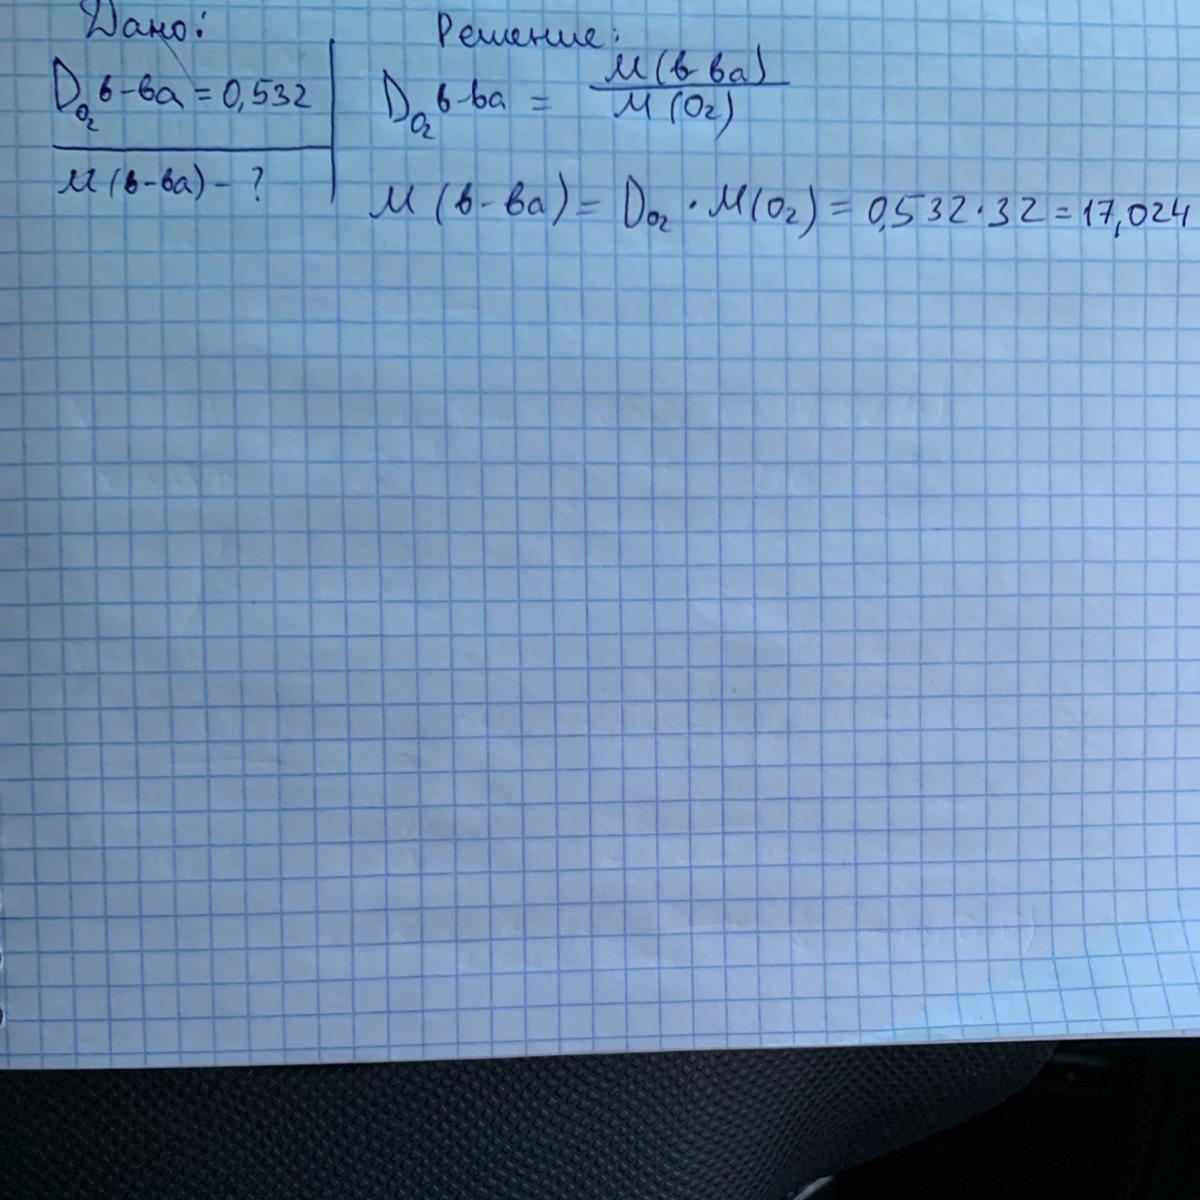 Дано:
D_O₂ в-ва = 0,532
М (в-ва) - ?
Решение:
D_O₂ в-ва = М (в-ва) / М (O₂)
М (в-ва) = D_O₂ · М (O₂) = 0,532 · 32 = 17,024